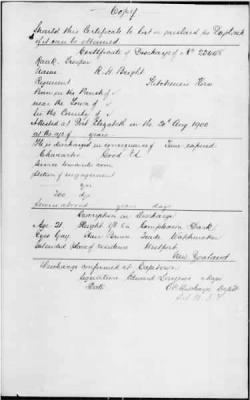 Copy
Should this Certificate be lost or mislaid no Duplicate
of it can be obtained
Certificate of Discharge of No 22445
Rank Trooper
Name R. H. Bright
Regiment Kitchener's Horse
Born in the Parish of
near the Town of
in the County of
Attested at Port Elizabeth on the 20th Aug 1900
at the age of years
He is discharged in consequence of Time expired
Character Good
Service towards com
Section of engagement
yrs
200 dys
Service abroad years days
Description on Discharge
Age 21 Height Complexion Dark
Eyes Gray Hair Brown Trade Watchmaker
Intended place of residence Westport
New Zealand
Discharge confirmed at Capetown
Signature Major
Date O.C. Discharge Depot